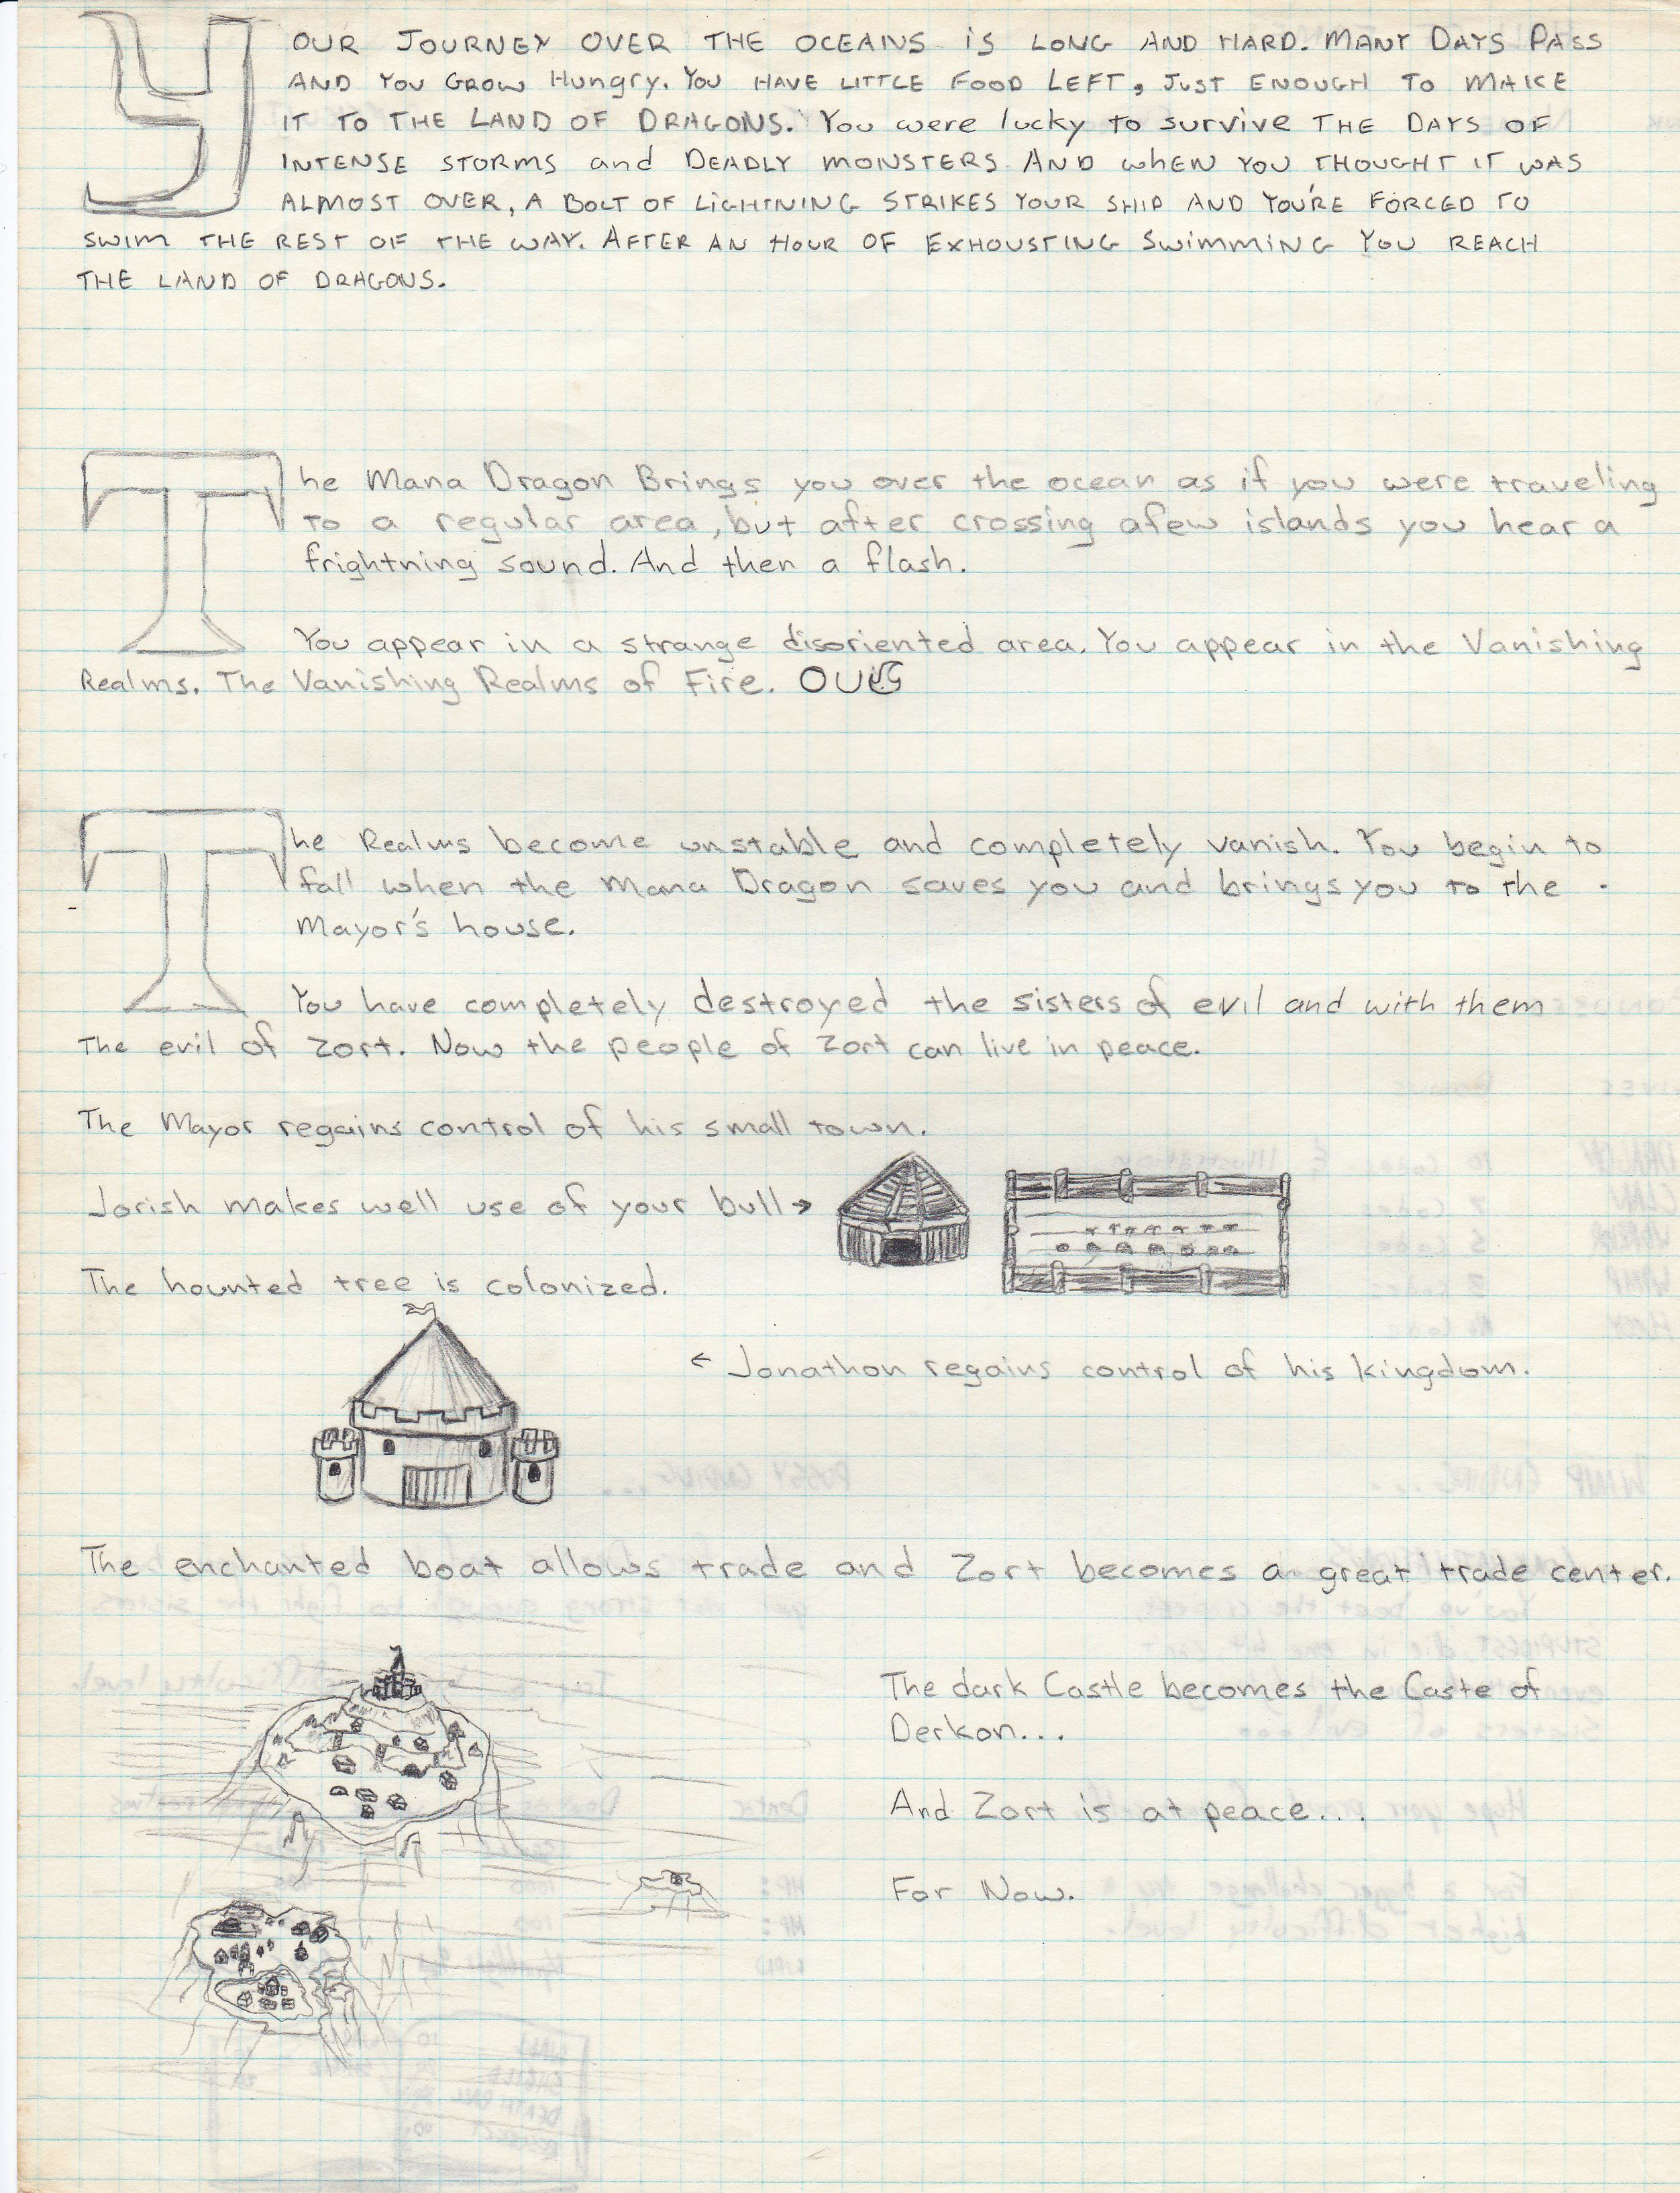 YOUR JOURNEY OVER THE OCEANS IS LONG AND HARD. MANY DAYS PASS
AND YOU GROW Hungry. YOU HAVE LITTLE FOOD LEFT, JUST ENOUGH TO MAKE
IT TO THE LAND OF DRAGONS. You were lucky to survive THE DAYS OF
INTENSE STORMS and DEADLY MONSTERS. AND WHEN YOU THOUGHT IT WAS
ALMOST OVER, A BOLT OF LIGHTNING STRIKES YOUR SHIP AND YOU'RE FORCED TO
SWIM THE REST OF THE WAY. AFTER AN HOUR OF EXHOUSTING SWIMMING YOU REACH
THE LAND OF DRAGONS.
The Mana Dragon Brings you over the ocean as if you were traveling
to a regular area, but after crossing afew islands you hear a
frightning sound. And then a flash.
You appear in a strange disoriented area. You appear in the Vanishing
Realms. The Vanishing Realms of Fire.
The Realms become unstable and completely vanish. You begin to
fall when the Mana Dragon saves you and brings you to the
Mayor's house.
You have completely destroyed the sisters of evil and with them
The evil of Zort. Now the people of Zort can live in peace.
The Mayor regains control of his small town.
Jorish makes well use of your bull →
The hounted tree is colonized.
← Jonathon regains control of his kingdom.
The enchanted boat allows trade and Zort becomes a great trade center.
The dark Castle becomes the Caste of
Derkon...
And Zort is at peace....
For Now.